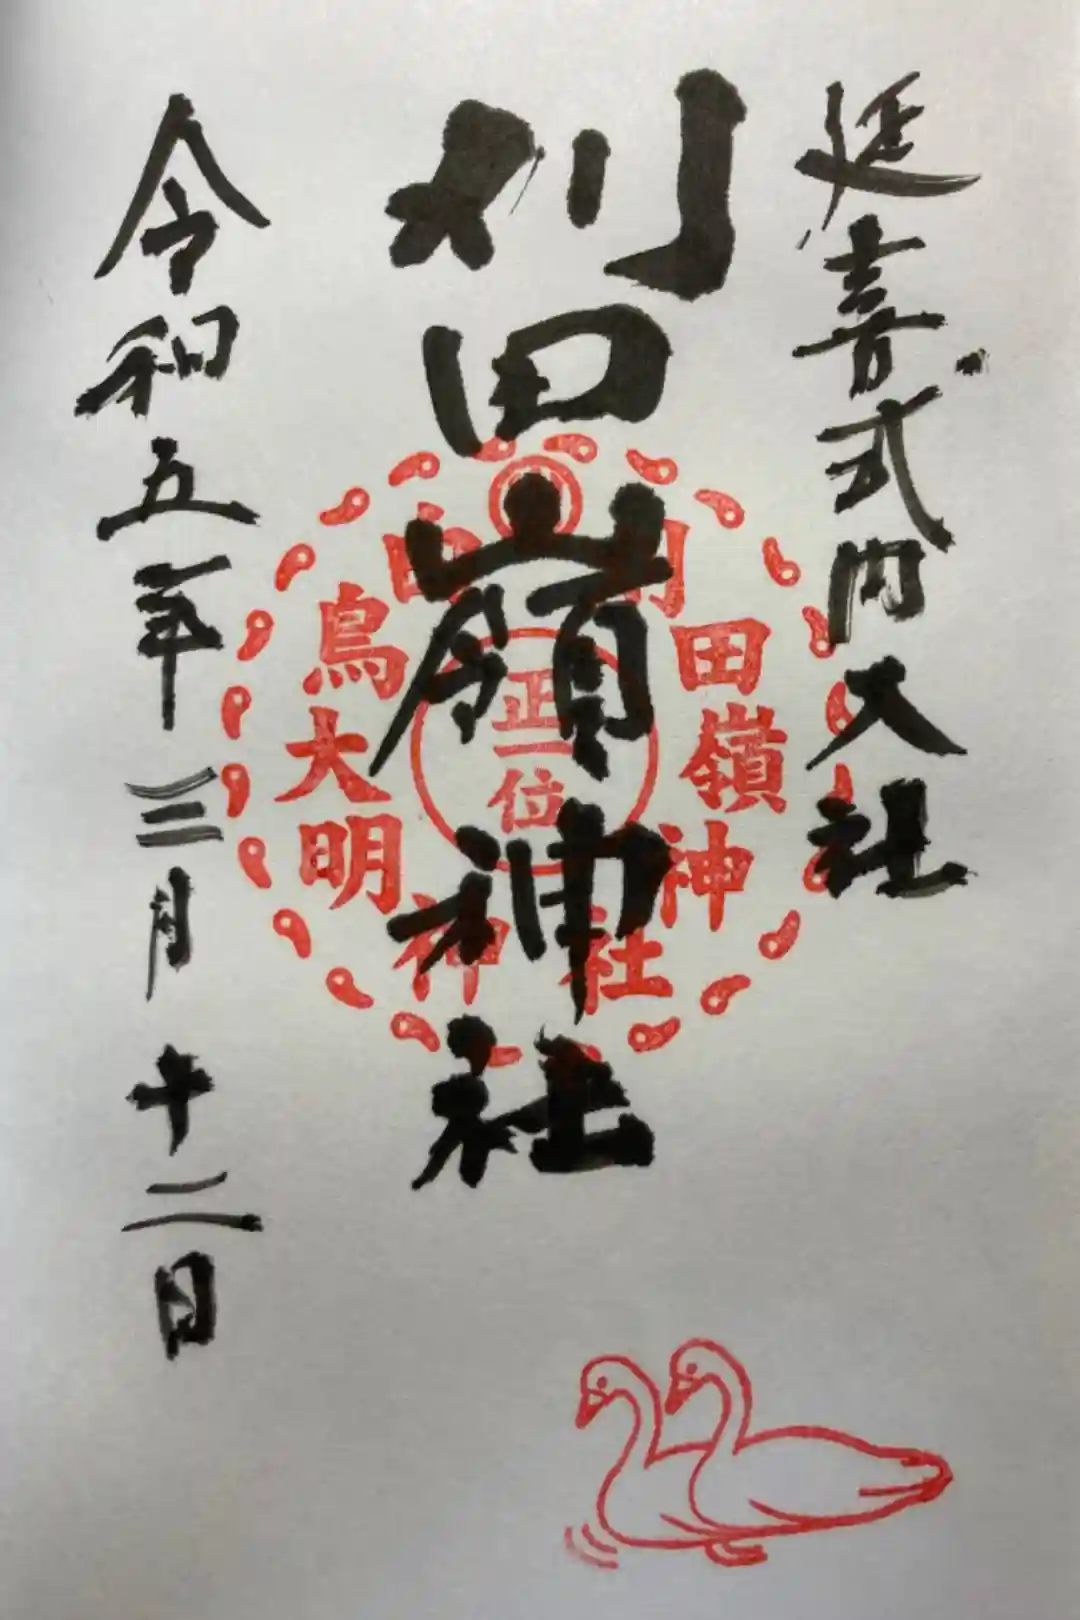 延喜式内大社
刈田嶺神社
令和五年三月十二日
刈田嶺神社
白鳥大明神
正一位